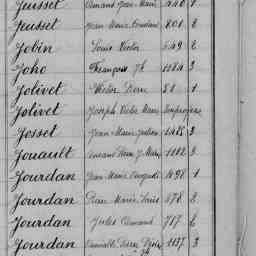 Jeusset Armand Jean Marie
Jeusset Jean Marie 801 2
Jobin Louis Victor 549 2
Joho François Jh 1184 3
Jolivet Victor Pierre 81 1
Jolivet Joseph Victor Marie
Josset Jean Marie Julien 1485 3
Jouault Armand Pierre J. Marie 1102 3
Jourdan Jean Marie Auguste 498 1
Jourdan Pierre Marie Louis 678 2
Jourdan Jules Armand 717 2
Jourdan Pierre 1137 3